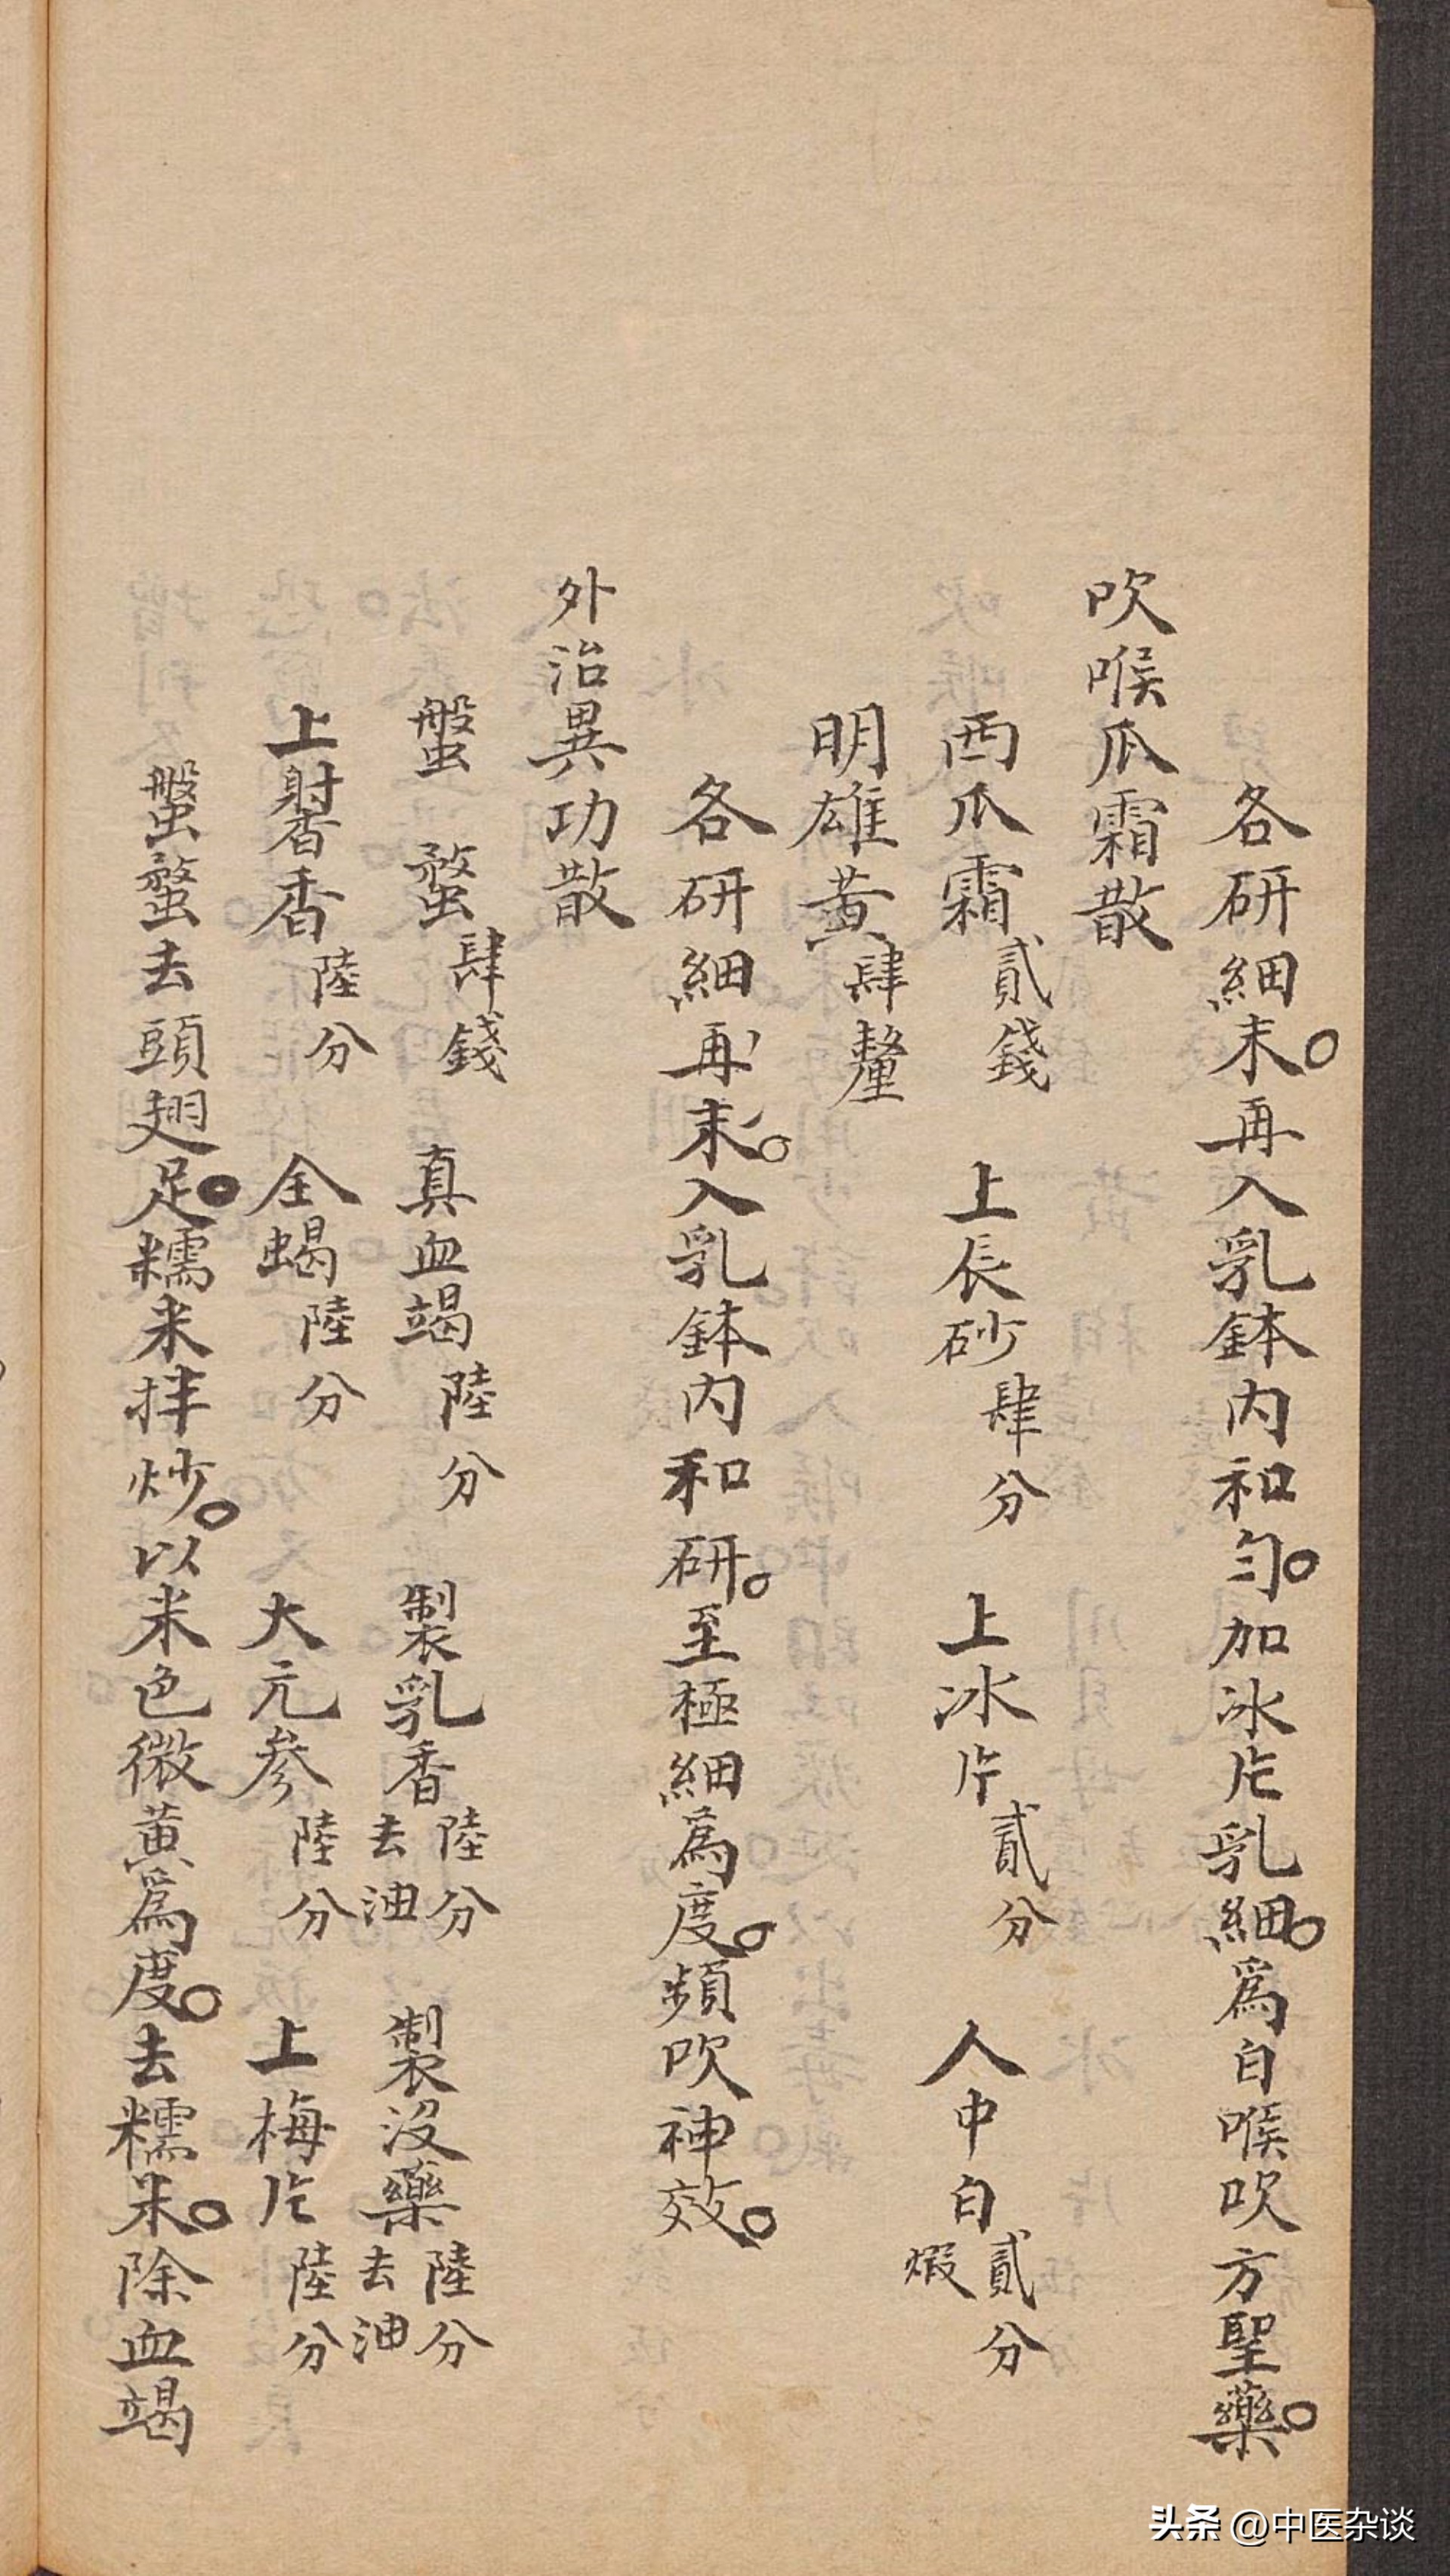 各研細末。再入乳鉢內和勻。加冰片乳細。為白喉吹方聖藥。
吹喉瓜霜散
西瓜霜貳錢　上辰砂肆分　上冰片貳分　人中白貳分煅
明雄黃肆釐
各研細再末。入乳鉢內和研。至極細為度。頻吹神效。
外治異功散
螌蝥肆錢　真血竭陸分　製乳香陸分去油　製沒藥陸分去油
上麝香陸分　全蝎陸分　大元參陸分　上梅片陸分
螌蝥去頭翅足。糯米拌炒。以米色微黃為度。去糯米。除血竭
头条 @中医杂谈